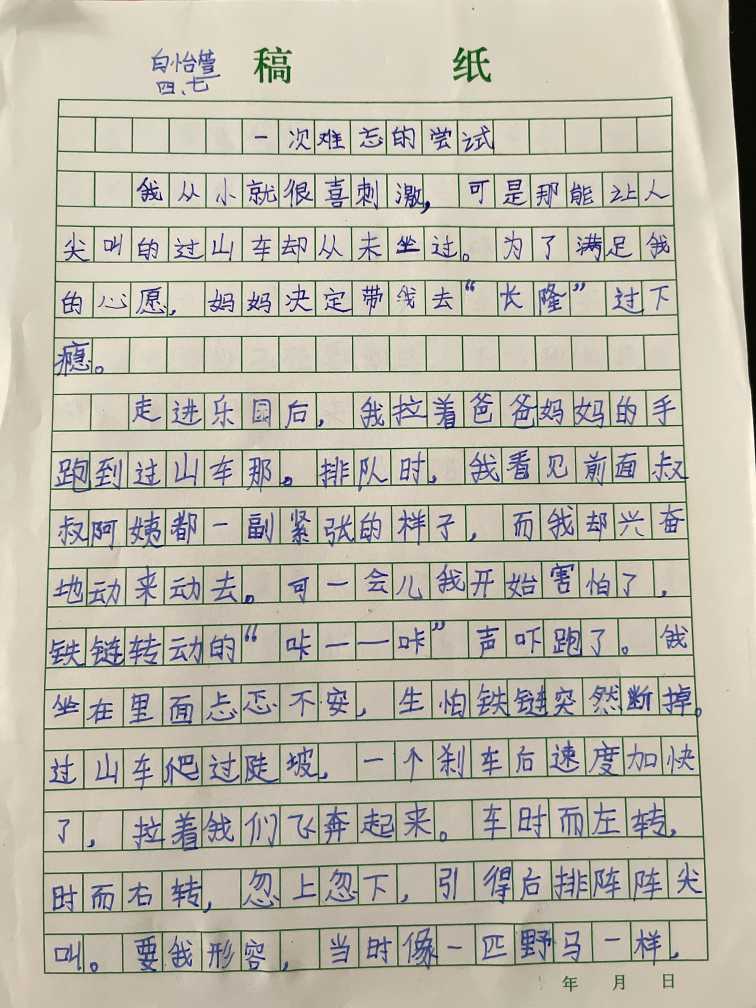 白怡萱
四、七
稿 纸
一次难忘的尝试
我从小就很喜刺激，可是那能让人
尖叫的过山车却从未坐过。为了满足我
的心愿，妈妈决定带我去“长隆”过下
瘾。
走进乐园后，我拉着爸爸妈妈的手
跑到过山车那。排队时，我看见前面叔
叔阿姨都一副紧张的样子，而我却兴奋
地动来动去。可一会儿我开始害怕了，
铁链转动的“咔一一咔”声吓跑了。我
坐在里面忐忑不安，生怕铁链突然断掉。
过山车爬过陡坡，一个刹车后速度加快
了，拉着我们飞奔起来。车时而左转，
时而右转，忽上忽下，引得后排阵阵尖
叫。要我形容，当时像一匹野马一样，
年 月 日